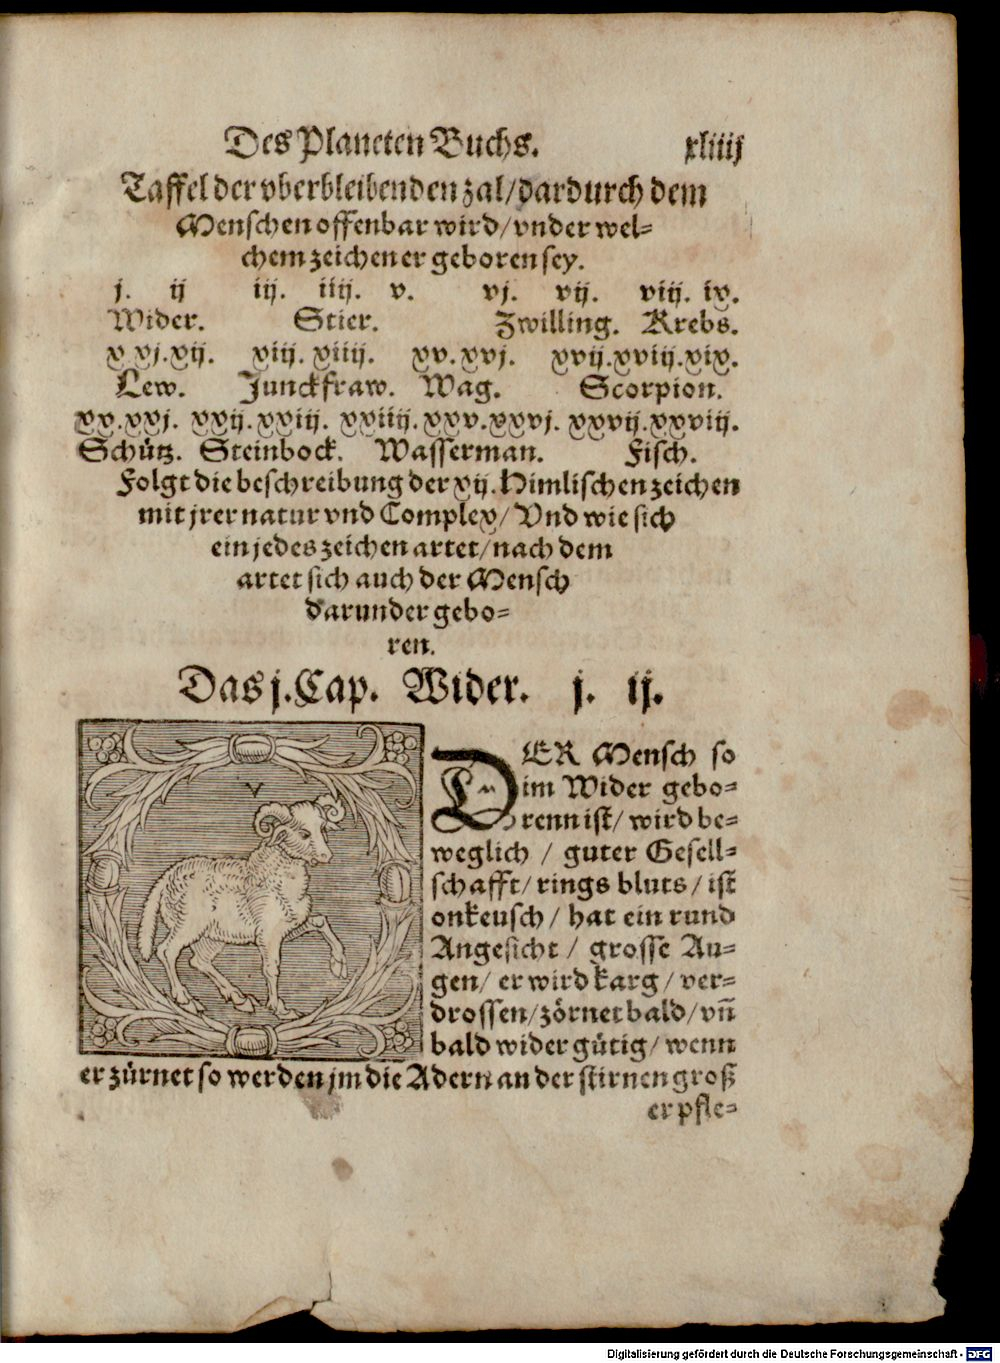 Des Planeten Buchs. xliiij
Taffel der vberbleibenden zal/dardurch dem
Menschen offenbar wird/vnder wel-
chem zeichen er geboren sey.
j. ij iij. iiij. v. vj. vij. viij. ix.
Wider. Stier. Zwilling. Krebs.
x xj.xij. xiij. xiiij. xv.xvj. xvij.xviij.xix.
Lew. Junckfraw. Wag. Scorpion.
xx.xxj. xxij.xxiij. xxiiij.xxv.xxvj. xxvij.xxviij.
Schütz. Steinbock. Wasserman. Fisch.
Folgt die beschreibung der xij. Himlischen zeichen
mit jrer natur vnd Complex/ Vnd wie sich
ein jedes zeichen artet/nach dem
artet sich auch der Mensch
darunder gebo-
ren.
Das j. Cap. Wider. j. ij.
DER Mensch so
im Wider gebo-
renn ist/ wird be-
weglich / guter Gesell-
schafft/ rings bluts/ ist
onkeusch/ hat ein rund
Angesicht / grosse Au-
gen/ er wird karg/ ver-
drossen/zörnet bald/vñ
bald wider gütig/ wenn
er zürnet so werden jm die Adern an der stirnen groß
er pfle-
Digitalisierung gefördert durch die Deutsche Forschungsgemeinschaft - DFG